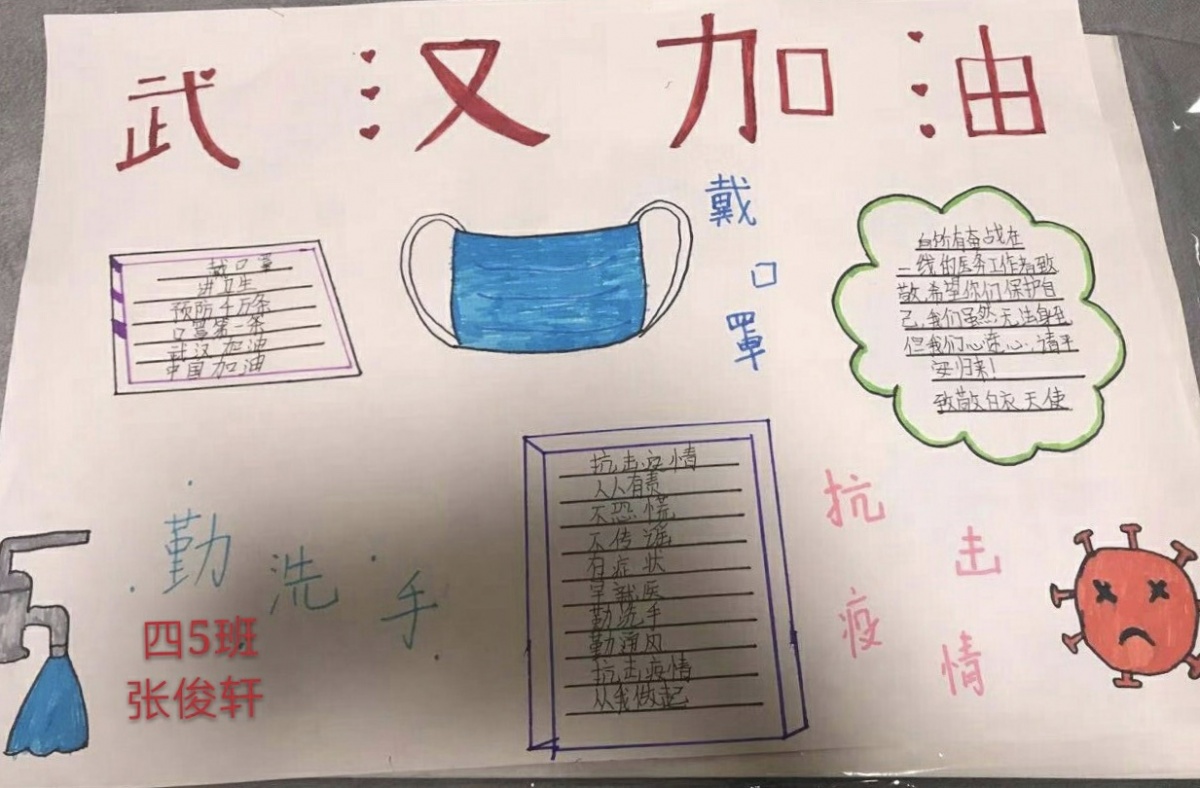 武汉加油
戴口罩
戴口罩
讲卫生
预防千万条
口罩第一条
武汉加油
中国加油
向所有奋战在
一线的医务工作者致
敬,希望你们保护自
己,我们虽然无法身在
但我们心连心,请平
安归来!
致敬白衣天使
抗击疫情
人人有责
不恐慌
不传谣
有症状
早就医
勤洗手
勤通风
抗击疫情
从我做起
勤洗手
抗击
疫情
四5班
张俊轩